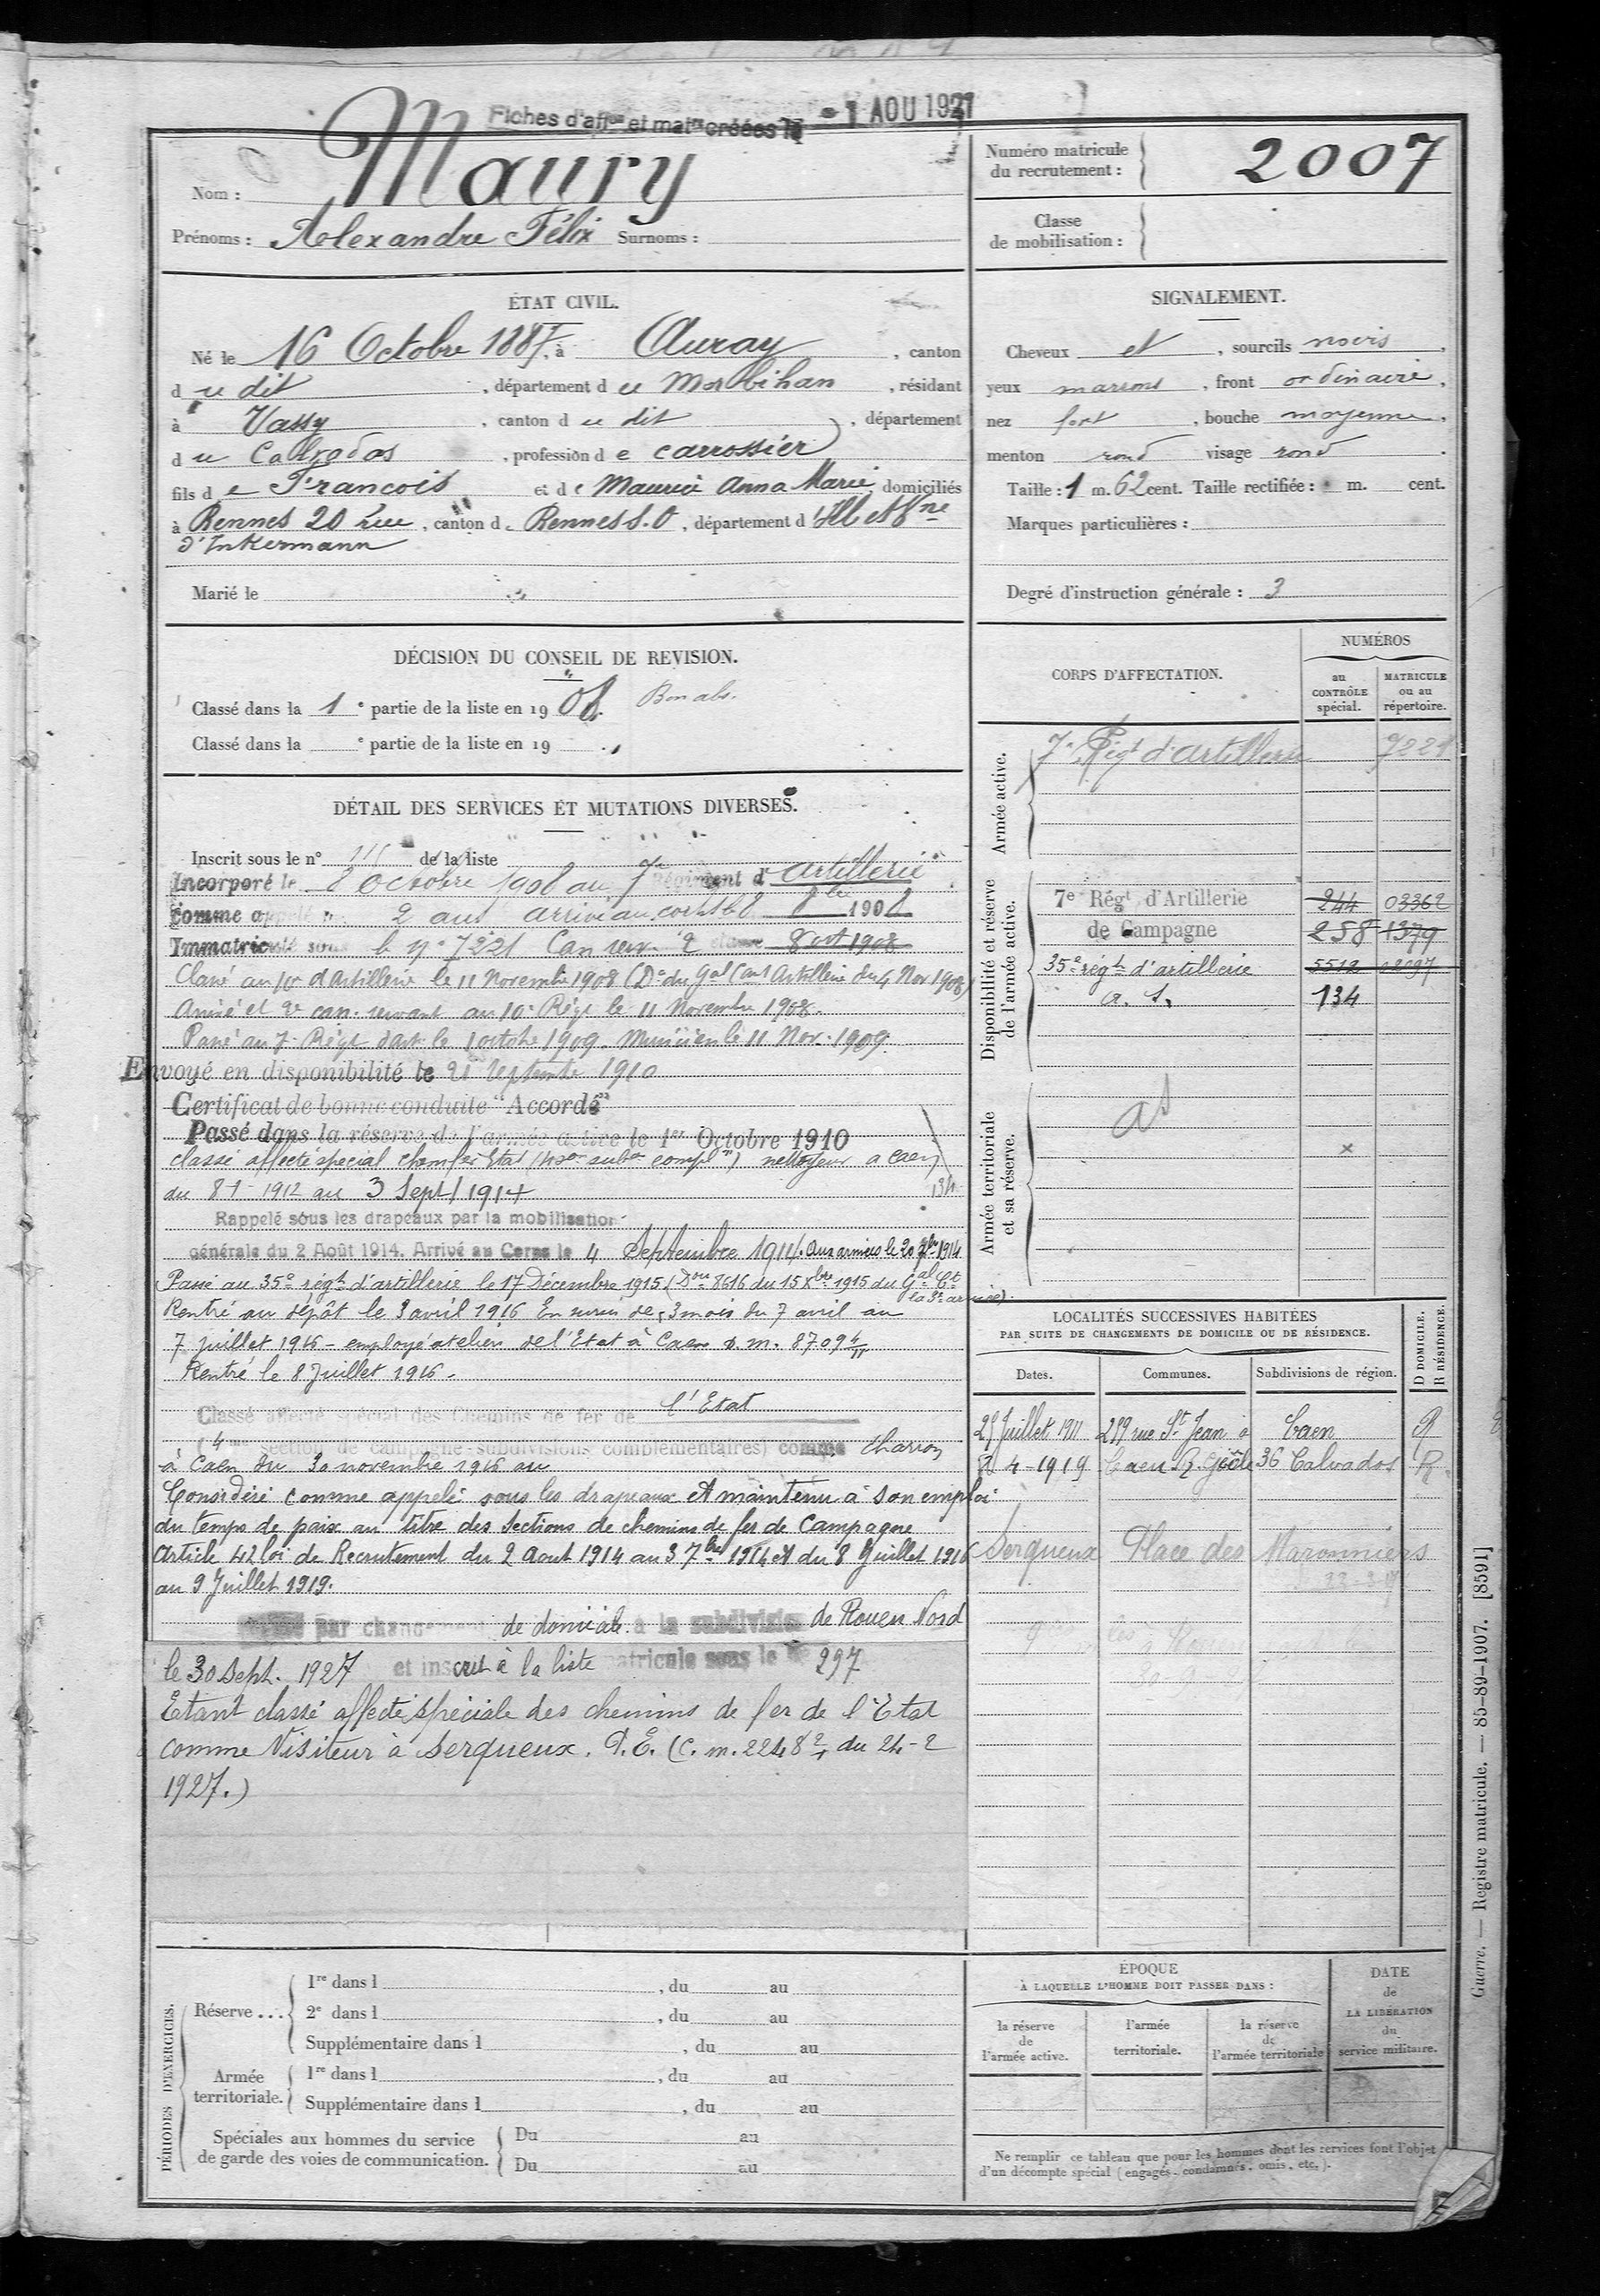 Fiches d'aff^on et mat^le créées le - 1 AOU 1927
Nom : Maury
Prénoms : Alexandre Félix Surnoms :
Numéro matricule
du recrutement : 2007
Classe
de mobilisation :
ÉTAT CIVIL.
Né le 16 Octobre 1887, à Auray, canton
du dit, département du Morbihan, résidant
à Vassy, canton du dit, département
du Calvados, profession de carrossier
fils de François et de Maurice Anna Marie, domiciliés
à Rennes 20 rue, canton de Rennes S.O, département d'Ille et Vne
d'Inkermann
Marié le
SIGNALEMENT.
Cheveux et, sourcils noirs,
yeux marrons, front ordinaire,
nez fort, bouche moyenne,
menton rond visage rond.
Taille : 1 m. 62 cent. Taille rectifiée : m. cent.
Marques particulières :
Degré d'instruction générale : 3
DÉCISION DU CONSEIL DE REVISION.
Classé dans la 1e partie de la liste en 1908. Bon abs.
Classé dans la e partie de la liste en 19
DÉTAIL DES SERVICES ET MUTATIONS DIVERSES.
Inscrit sous le n° de la liste
Incorporé le 8 Octobre 1908 au 7 Régiment d'Artillerie
comme appelé 2 ans arrivé au corps led 8 bre 1908
Immatriculé sous le n° 7221 Can serv. 2 classe 8 oct 1908
Classé au 10e d'Artillerie le 11 Novembre 1908 (Don du Gal Cant Artillerie du 4 Nov 1908)
Arrivé et 2e can. servant au 10e Régt le 11 Novembre 1908.
Passé au 7e Régt d'art. le 1 octobre 1909. Musicien le 11 Nov. 1909
Envoyé en disponibilité le 25 septembre 1910
Certificat de bonne conduite "Accordé"
Passé dans la réserve de l'armée active le 1er Octobre 1910
classé affecté spécial chem fer Etat (4e son subon compl^re) nettoyeur à Caen
du 8-1-1912 au 3 Sept 1914 134
Rappelé sous les drapeaux par la mobilisation
générale du 2 Août 1914. Arrivé au Corps le 4 Septembre 1914. Aux armées le 20 7bre 1914
Passé au 35e régt d'artillerie le 17 Décembre 1915 (Don 8616 du 15 Xbre 1915 du Gal Ct
la 3e armée)
Rentré au dépôt le 3 avril 1916 En sursis de 3 mois du 7 avril au
7 juillet 1916 - employé ateliers de l'Etat à Caen D.M. 8709 4/11
Rentré le 8 Juillet 1916.
Classé affecté spécial des Chemins de fer de l'Etat
(4me section de campagne-subdivisions complémentaires) comme charron
à Caen du 30 novembre 1916 au
Considéré comme appelé sous les drapeaux et maintenu à son emploi
du temps de paix au titre des Sections de chemins de fer de Campagne
Article 42 loi de Recrutement du 2 Aout 1914 au 3 7bre 1914 et du 8 Juillet 1916
au 9 Juillet 1919.
Passé par changement de domicile à la subdivision de Rouen Nord
le 30 sept. 1927 et inscrit à la liste matricule sous le n° 297
Etant classé affecté spéciale des chemins de fer de l'Etat
comme Visiteur à Serqueux. P.E. (C.m. 2248 2/4 du 24-2
1927.)
CORPS D'AFFECTATION.
NUMÉROS
au CONTRÔLE spécial.
MATRICULE ou au répertoire.
Armée active.
7e Régt d'artillerie 7221
Disponibilité et réserve de l'armée active.
7e Régt d'Artillerie 244 03362
de Campagne 258 1379
35e régt d'artillerie 5512 02097
A. S. 134
Armée territoriale et sa réserve.
AS
LOCALITÉS SUCCESSIVES HABITÉES
PAR SUITE DE CHANGEMENTS DE DOMICILE OU DE RÉSIDENCE.
Dates. Communes. Subdivisions de région. D DOMICILE. R RÉSIDENCE.
25 Juillet 1911 259 rue St Jean à Caen R
4-1919 Caen R. Geôle 36 Calvados R
Serqueux Place des Maronniers
PÉRIODES D'EXERCICES.
Réserve ...
1re dans l, du au
2e dans l, du au
Supplémentaire dans l, du au
Armée territoriale.
1re dans l, du au
Supplémentaire dans l, du au
Spéciales aux hommes du service
de garde des voies de communication.
Du au
Du au
ÉPOQUE
À LAQUELLE L'HOMME DOIT PASSER DANS :
la réserve de l'armée active.
l'armée territoriale.
la réserve de l'armée territoriale
DATE de LA LIBERATION du service militaire.
Ne remplir ce tableau que pour les hommes dont les services font l'objet
d'un décompte spécial (engagés, condamnés, omis, etc.).
Guerre. — Registre matricule. — 85-89-1907. [8591]